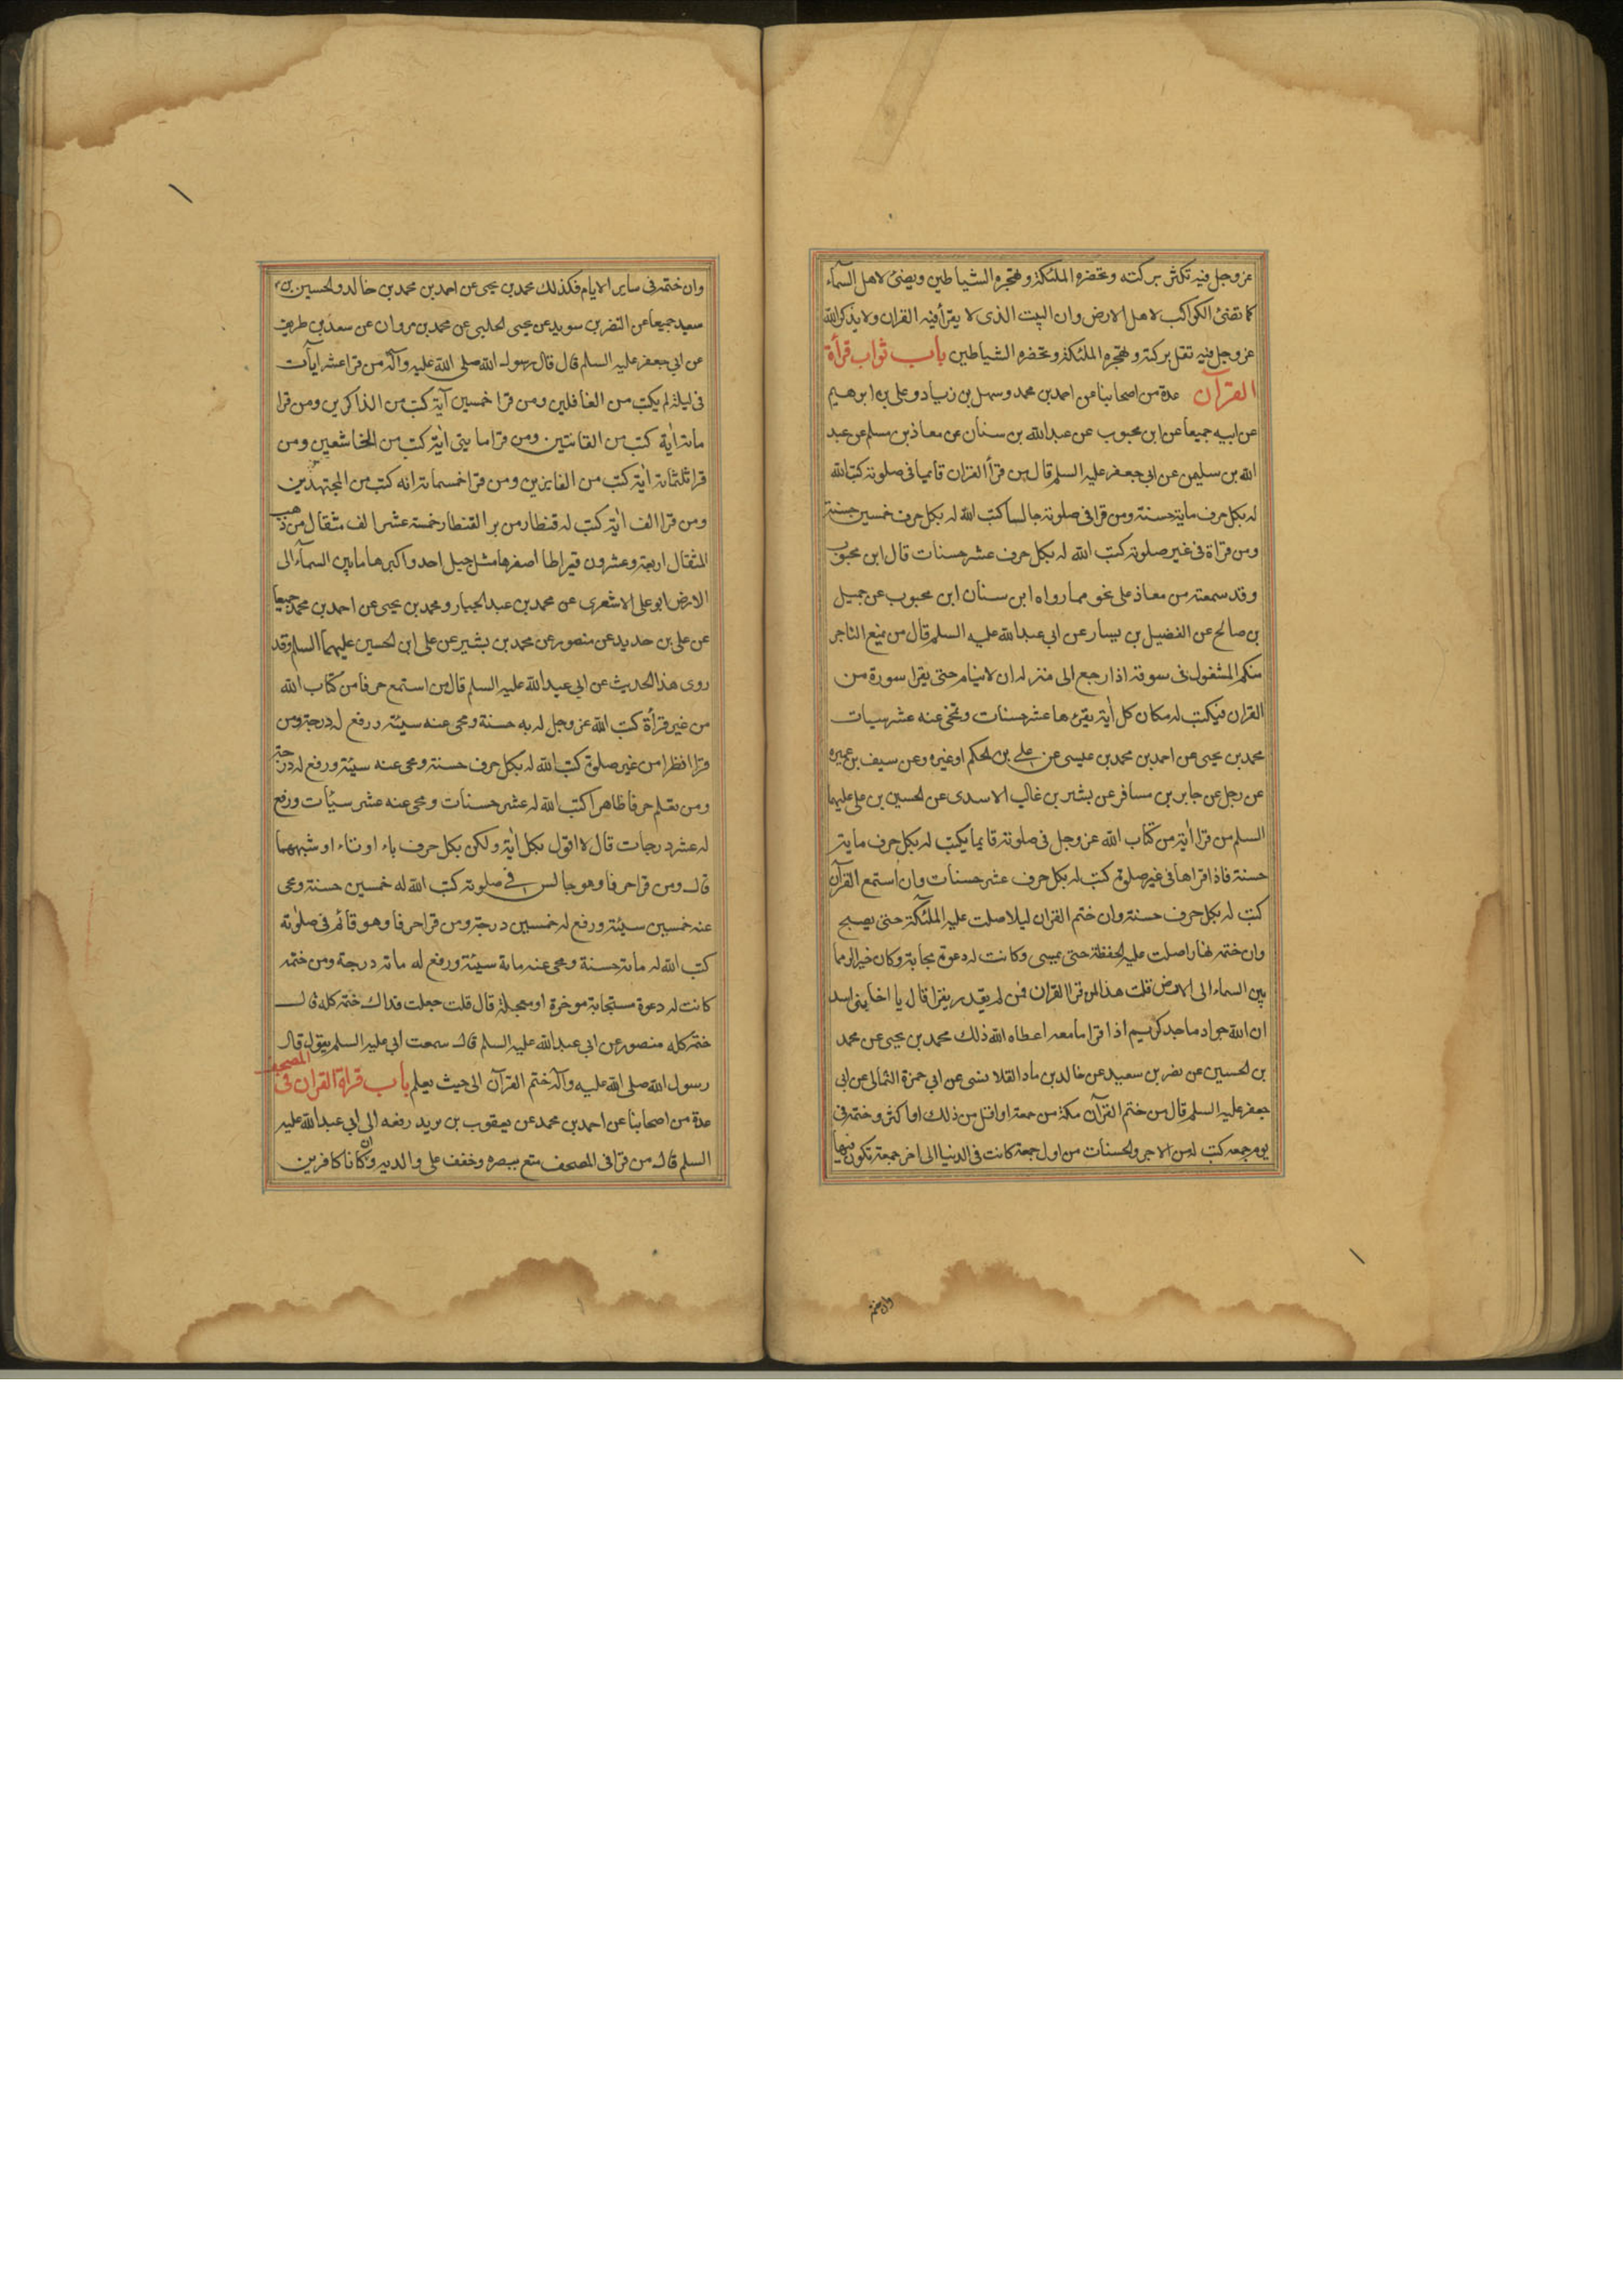 عز وجل فيه تكثر بركته وتحضره الملئكة وتهجره الشياطين ويضئ لاهل السماء
كما تضئ الكواكب لاهل الارض وان البيت الذى لا يقرأ فيه القران ولا يذكر الله
عز وجل فيه تقل بركته وتهجره الملئكة وتحضره الشياطين باب ثواب قرأة
القرآن عدة من اصحابنا عن احمد بن محمد وسهل بن زياد وعلى بن ابرهيم
عن ابيه جميعا عن ابن محبوب عن عبد الله بن سنان عن معاذ بن مسلم عن عبد
الله بن سليمن عن ابى جعفر عليه السلم قال من قرأ القران قايما فى صلوته كتب الله
له بكل حرف ماية حسنة ومن قرا فى صلوته جالسا كتب الله له بكل حرف خمسين حسنة
ومن قراة فى غير صلوته كتب الله له بكل حرف عشر حسنات قال ابن محبوب
وقد سمعته من معاذ على نحو مما رواه ابن سنان ابن محبوب عن جميل
بن صالح عن الفضيل بن يسار عن ابى عبد الله عليه السلم قال من يمنع التاجر
منكم المشغول فى سوقه اذا رجع الى منزله ان لا ينام حتى يقرا سورة من
القران فيكتب له مكان كل اية يقرءها عشر حسنات وتمحى عنه عشر سيات
محمد بن يحيى عن احمد بن محمد بن عيسى عن على بن الحكم او غيره وعن سيف بن عميره
عن رجل عن جابر بن مسافر عن بشير بن غالب الاسدى عن الحسين بن على عليهما
السلم من قرا اية من كتاب الله عز وجل فى صلوته قايما يكتب له بكل حرف ماية
حسنة فاذا قراها فى غير صلوة كتب له بكل حرف عشر حسنات وان استمع القرآن
كتب له بكل حرف حسنة وان ختم القران ليلا صلت عليه الملئكة حتى يصبح
وان ختمه نهارا صلت عليه الحفظة حتى يمسى وكانت له دعوة مجابة وكان خيرا له مما
بين السماء الى الارض قلت هذا لمن قرا القران فمن لم يقدر يقرا قال يا اخا بنى اسد
ان الله جواد ماجد كريم اذا قرا ما معه اعطاه الله ذلك محمد بن يحيى عن محمد
بن الحسين عن نضر بن سعيد عن خالد بن ماد القلانسى عن ابى حمزة الثمالى عن ابى
جعفر عليه السلم قال من ختم القرآن بمكة من جمعة او اقل من ذلك او اكثر وختمه فى
يوم جمعه كتب له من الاجر والحسنات من اول جمعة كانت فى الدنيا الى اخر جمعة تكون فيها
وان ختم
وان ختمه فى ساير الايام فكذلك محمد بن يحيى عن احمد بن محمد بن خالد والحسين بن
سعيد جميعا عن النضر بن سويد عن يحيى الحلبى عن محمد بن مروان عن سعد بن طريف
عن ابى جعفر عليه السلم قال قال رسول الله صلى الله عليه وآله من قرا عشر ايآت
فى ليلة لم يكتب من الغافلين ومن قرا خمسين آية كتب من الذاكرين ومن قرا
مائة اية كتب من القانتين ومن قرا مايتى اية كتب من الخاشعين ومن
قرا ثلثمائة اية كتب من الفايزين ومن قرا خمسمائة اية كتب من المجتهدين
ومن قرا الف اية كتب له قنطار من بر القنطار خمسة عشر الف مثقال من ذهب
المثقال اربعة وعشرون قيراطا اصغرها مثل جبل احد واكبرها ما بين السماء الى
الارض ابو على الاشعرى عن محمد بن عبد الجبار ومحمد بن يحيى عن احمد بن محمد جميعا
عن على بن حديد عن منصور عن محمد بن بشير عن على ابن الحسين عليهما السلم وقد
روى هذا الحديث عن ابى عبد الله عليه السلم قال من استمع حرفا من كتاب الله
من غير قرأة كتب الله عز وجل له به حسنة ومحى عنه سيئة ورفع له درجة ومن
قرا نظرا من غير صلوة كتب الله له بكل حرف حسنة ومحى عنه سيئة ورفع له درجة
ومن تعلم حرفا ظاهرا كتب الله له عشر حسنات ومحى عنه عشر سيئات ورفع
له عشر درجات قال لا اقول بكل اية ولكن بكل حرف باء او تاء او شبههما
قال ومن قرا حرفا وهو جالس فى صلوته كتب الله له خمسين حسنة ومحى
عنه خمسين سيئة ورفع له خمسين درجة ومن قرا حرفا وهو قائم فى صلوته
كتب الله له مائة حسنة ومحى عنه مائة سيئة ورفع له مائة درجة ومن ختمه
كانت له دعوة مستجابة موخرة او معجلة قال قلت جعلت فداك ختمه كله قال
ختمه كله منصور عن ابى عبد الله عليه السلم قال سمعت ابى عليه السلم يقول قال
رسول الله صلى الله عليه وآله ختم القرآن الى حيث يعلم باب قراة القران فى المصحف
عدة من اصحابنا عن احمد بن محمد عن يعقوب بن يزيد رفعه الى ابى عبد الله عليه
السلم قال من قرا فى المصحف متع ببصره وخفف على والديه وان كانا كافرين